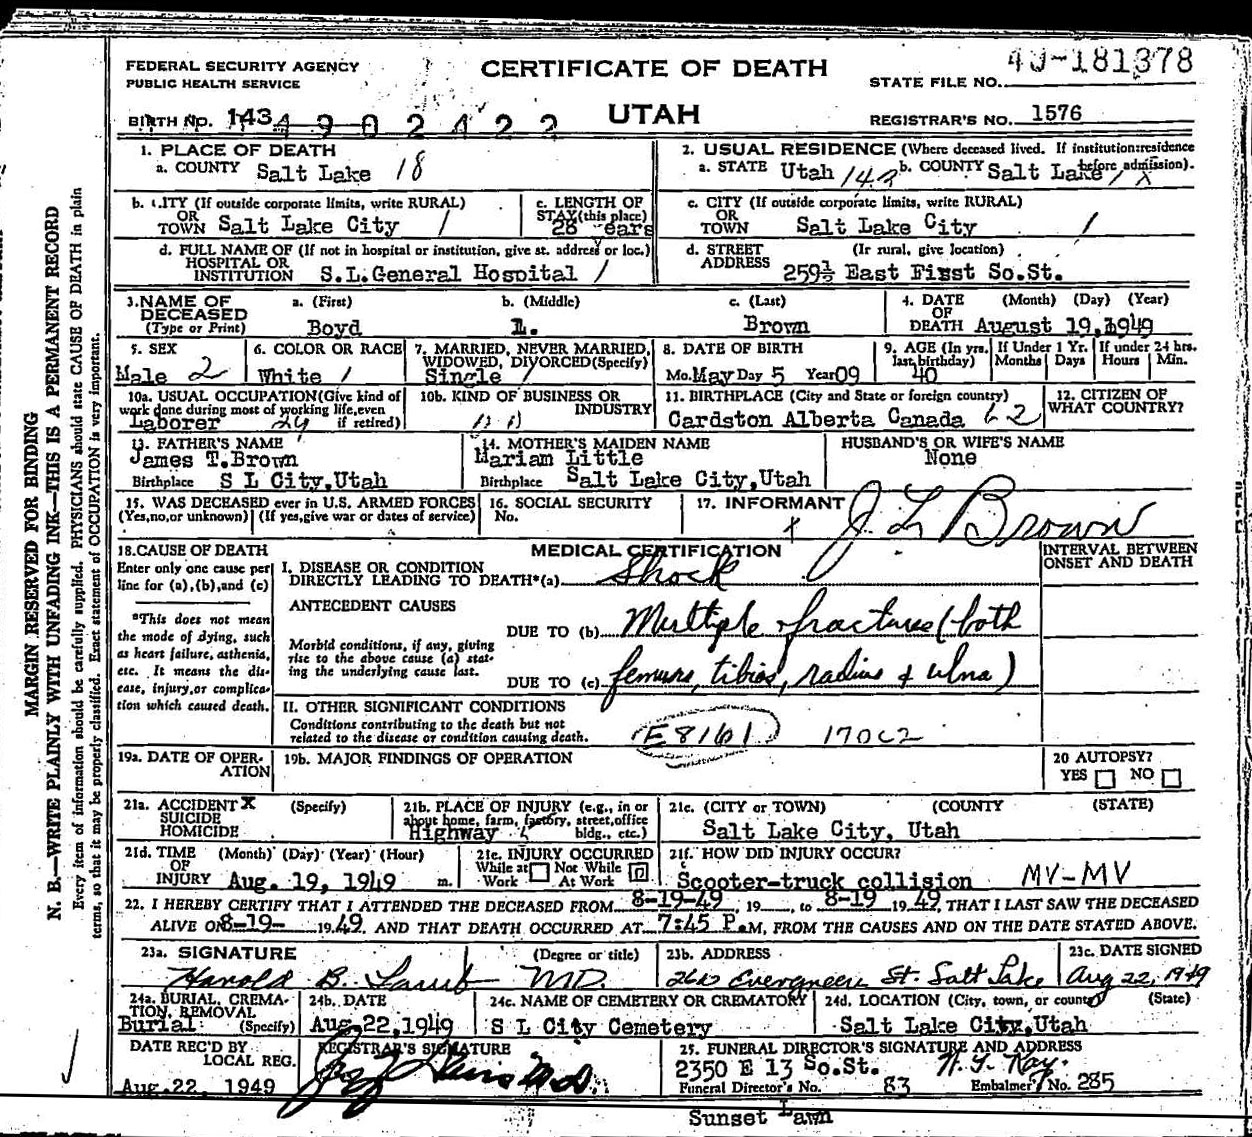 FEDERAL SECURITY AGENCY
PUBLIC HEALTH SERVICE
CERTIFICATE OF DEATH
UTAH
STATE FILE NO. 49-181378
BIRTH No. 143 4902422
REGISTRAR'S NO. 1576
1. PLACE OF DEATH
a. COUNTY Salt Lake 18
2. USUAL RESIDENCE (Where deceased lived. If institution:residence before admission).
a. STATE Utah b. COUNTY Salt Lake
b. CITY (If outside corporate limits, write RURAL)
OR TOWN Salt Lake City
c. LENGTH OF STAY (this place)
28 Years
c. CITY (If outside corporate limits, write RURAL)
OR TOWN Salt Lake City
d. FULL NAME OF (If not in hospital or institution, give st. address or loc.)
HOSPITAL OR INSTITUTION S.L.General Hospital
d. STREET ADDRESS (If rural, give location)
259½ East First So.St.
3. NAME OF DECEASED (Type or Print)
a. (First) Boyd
b. (Middle) L.
c. (Last) Brown
4. DATE OF DEATH (Month) (Day) (Year)
August 19, 1949
5. SEX
Male 2
6. COLOR OR RACE
White
7. MARRIED, NEVER MARRIED, WIDOWED, DIVORCED(Specify)
Single
8. DATE OF BIRTH
Mo. May Day 5 Year 09
9. AGE (In yrs. last birthday)
40
If Under 1 Yr. Months Days
If under 24 hrs. Hours Min.
10a. USUAL OCCUPATION(Give kind of work done during most of working life,even if retired)
Laborer
10b. KIND OF BUSINESS OR INDUSTRY
11. BIRTHPLACE (City and State or foreign country)
Cardston Alberta Canada
12. CITIZEN OF WHAT COUNTRY?
13. FATHER'S NAME
James T.Brown
Birthplace S L City,Utah
14. MOTHER'S MAIDEN NAME
Mariam Little
Birthplace Salt Lake City,Utah
HUSBAND'S OR WIFE'S NAME
None
15. WAS DECEASED ever in U.S. ARMED FORCES
(Yes,no,or unknown) (If yes,give war or dates of service)
16. SOCIAL SECURITY No.
17. INFORMANT
x J. L. Brown
18. CAUSE OF DEATH
Enter only one cause per line for (a),(b),and (c)
*This does not mean the mode of dying, such as heart failure, asthenia, etc. It means the disease, injury,or complication which caused death.
MEDICAL CERTIFICATION
INTERVAL BETWEEN ONSET AND DEATH
I. DISEASE OR CONDITION DIRECTLY LEADING TO DEATH*(a) Shock
ANTECEDENT CAUSES
Morbid conditions, if any, giving rise to the above cause (a) stating the underlying cause last.
DUE TO (b) Multiple fractures (both
DUE TO (c) femurs, tibias, radius & ulna)
II. OTHER SIGNIFICANT CONDITIONS
Conditions contributing to the death but not related to the disease or condition causing death.
E8161
19a. DATE OF OPERATION
19b. MAJOR FINDINGS OF OPERATION
20 AUTOPSY?
YES NO
21a. ACCIDENT X (Specify)
SUICIDE
HOMICIDE
21b. PLACE OF INJURY (e.g., in or about home, farm, factory, street,office bldg., etc.)
Highway
21c. (CITY or TOWN) (COUNTY) (STATE)
Salt Lake City, Utah
21d. TIME OF INJURY (Month) (Day) (Year) (Hour)
Aug. 19, 1949 m.
21e. INJURY OCCURRED
While at Work Not While At Work
21f. HOW DID INJURY OCCUR?
Scooter-truck collision MV-MV
22. I HEREBY CERTIFY THAT I ATTENDED THE DECEASED FROM 8-19-49, 19__, to 8-19 19 49, THAT I LAST SAW THE DECEASED
ALIVE ON 8-19- 19 49, AND THAT DEATH OCCURRED AT 7:45 P.M, FROM THE CAUSES AND ON THE DATE STATED ABOVE.
23a. SIGNATURE (Degree or title)
Harold B. Lamb MD.
23b. ADDRESS
Evergreen St. Salt Lake
23c. DATE SIGNED
Aug 22, 1949
24a. BURIAL, CREMATION, REMOVAL (Specify)
Burial
24b. DATE
Aug.22,1949
24c. NAME OF CEMETERY OR CREMATORY
S L City Cemetery
24d. LOCATION (City, town, or county) (State)
Salt Lake City,Utah
DATE REC'D BY LOCAL REG.
Aug.22, 1949
REGISTRAR'S SIGNATURE
25. FUNERAL DIRECTOR'S SIGNATURE AND ADDRESS
2350 E 13 So.St.
Funeral Director's No. 83 Embalmer's No. 285
Sunset Lawn
MARGIN RESERVED FOR BINDING
N. B.—WRITE PLAINLY WITH UNFADING INK—THIS IS A PERMANENT RECORD
Every item of information should be carefully supplied. PHYSICIANS should state CAUSE OF DEATH in plain
terms, so that it may be properly classified. Exact statement of OCCUPATION is very important.